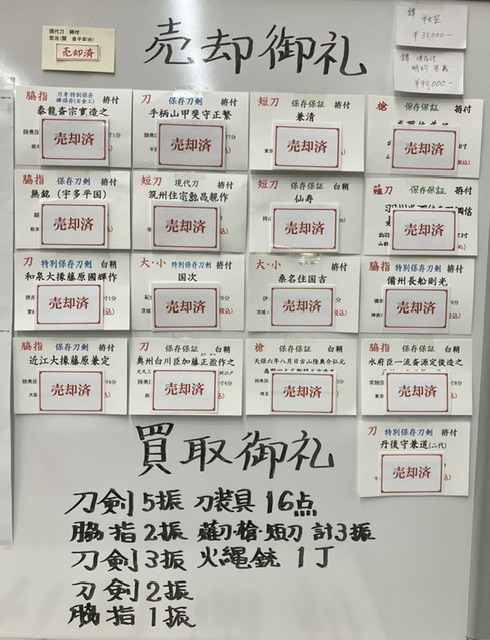 現代刀 拵付
売却済
売却御礼
¥35000-
¥95000-
脇指 拵付
泰龍斎宗寛造之
売却済
刀 保存刀剣 拵付
手柄山甲斐守正繁
売却済
短刀 保存保証 拵付
兼清
売却済
槍 保存保証 拵付
売却済
脇指 保存刀剣 拵付
無銘(宇多平国)
売却済
短刀 現代刀 拵付
筑州住宗勉昌親作
売却済
短刀 保存保証 白鞘
仙寿
売却済
薙刀 保存保証 拵付
売却済
刀 特別保存刀剣 白鞘
和泉大掾藤原國輝作
売却済
大・小 特別保存刀剣 拵付
国次
売却済
大・小 保存保証 拵付
桑名住国吉
売却済
脇指 特別保存刀剣 拵付
備州長船則光
売却済
脇指 保存刀剣 白鞘
近江大掾藤原兼定
売却済
刀 保存保証 白鞘
奥州白川臣加藤正盈作之
売却済
槍 保存保証 白鞘
売却済
脇指 保存保証 白鞘
水府臣一流斎源定俊造之
売却済
刀 特別保存刀剣 拵付
丹後守兼道(二代)
売却済
買取御礼
刀剣5振 刀装具16点
脇指2振 薙刀・槍・短刀 計3振
刀剣3振 火縄銃 1丁
刀剣2振
脇指1振